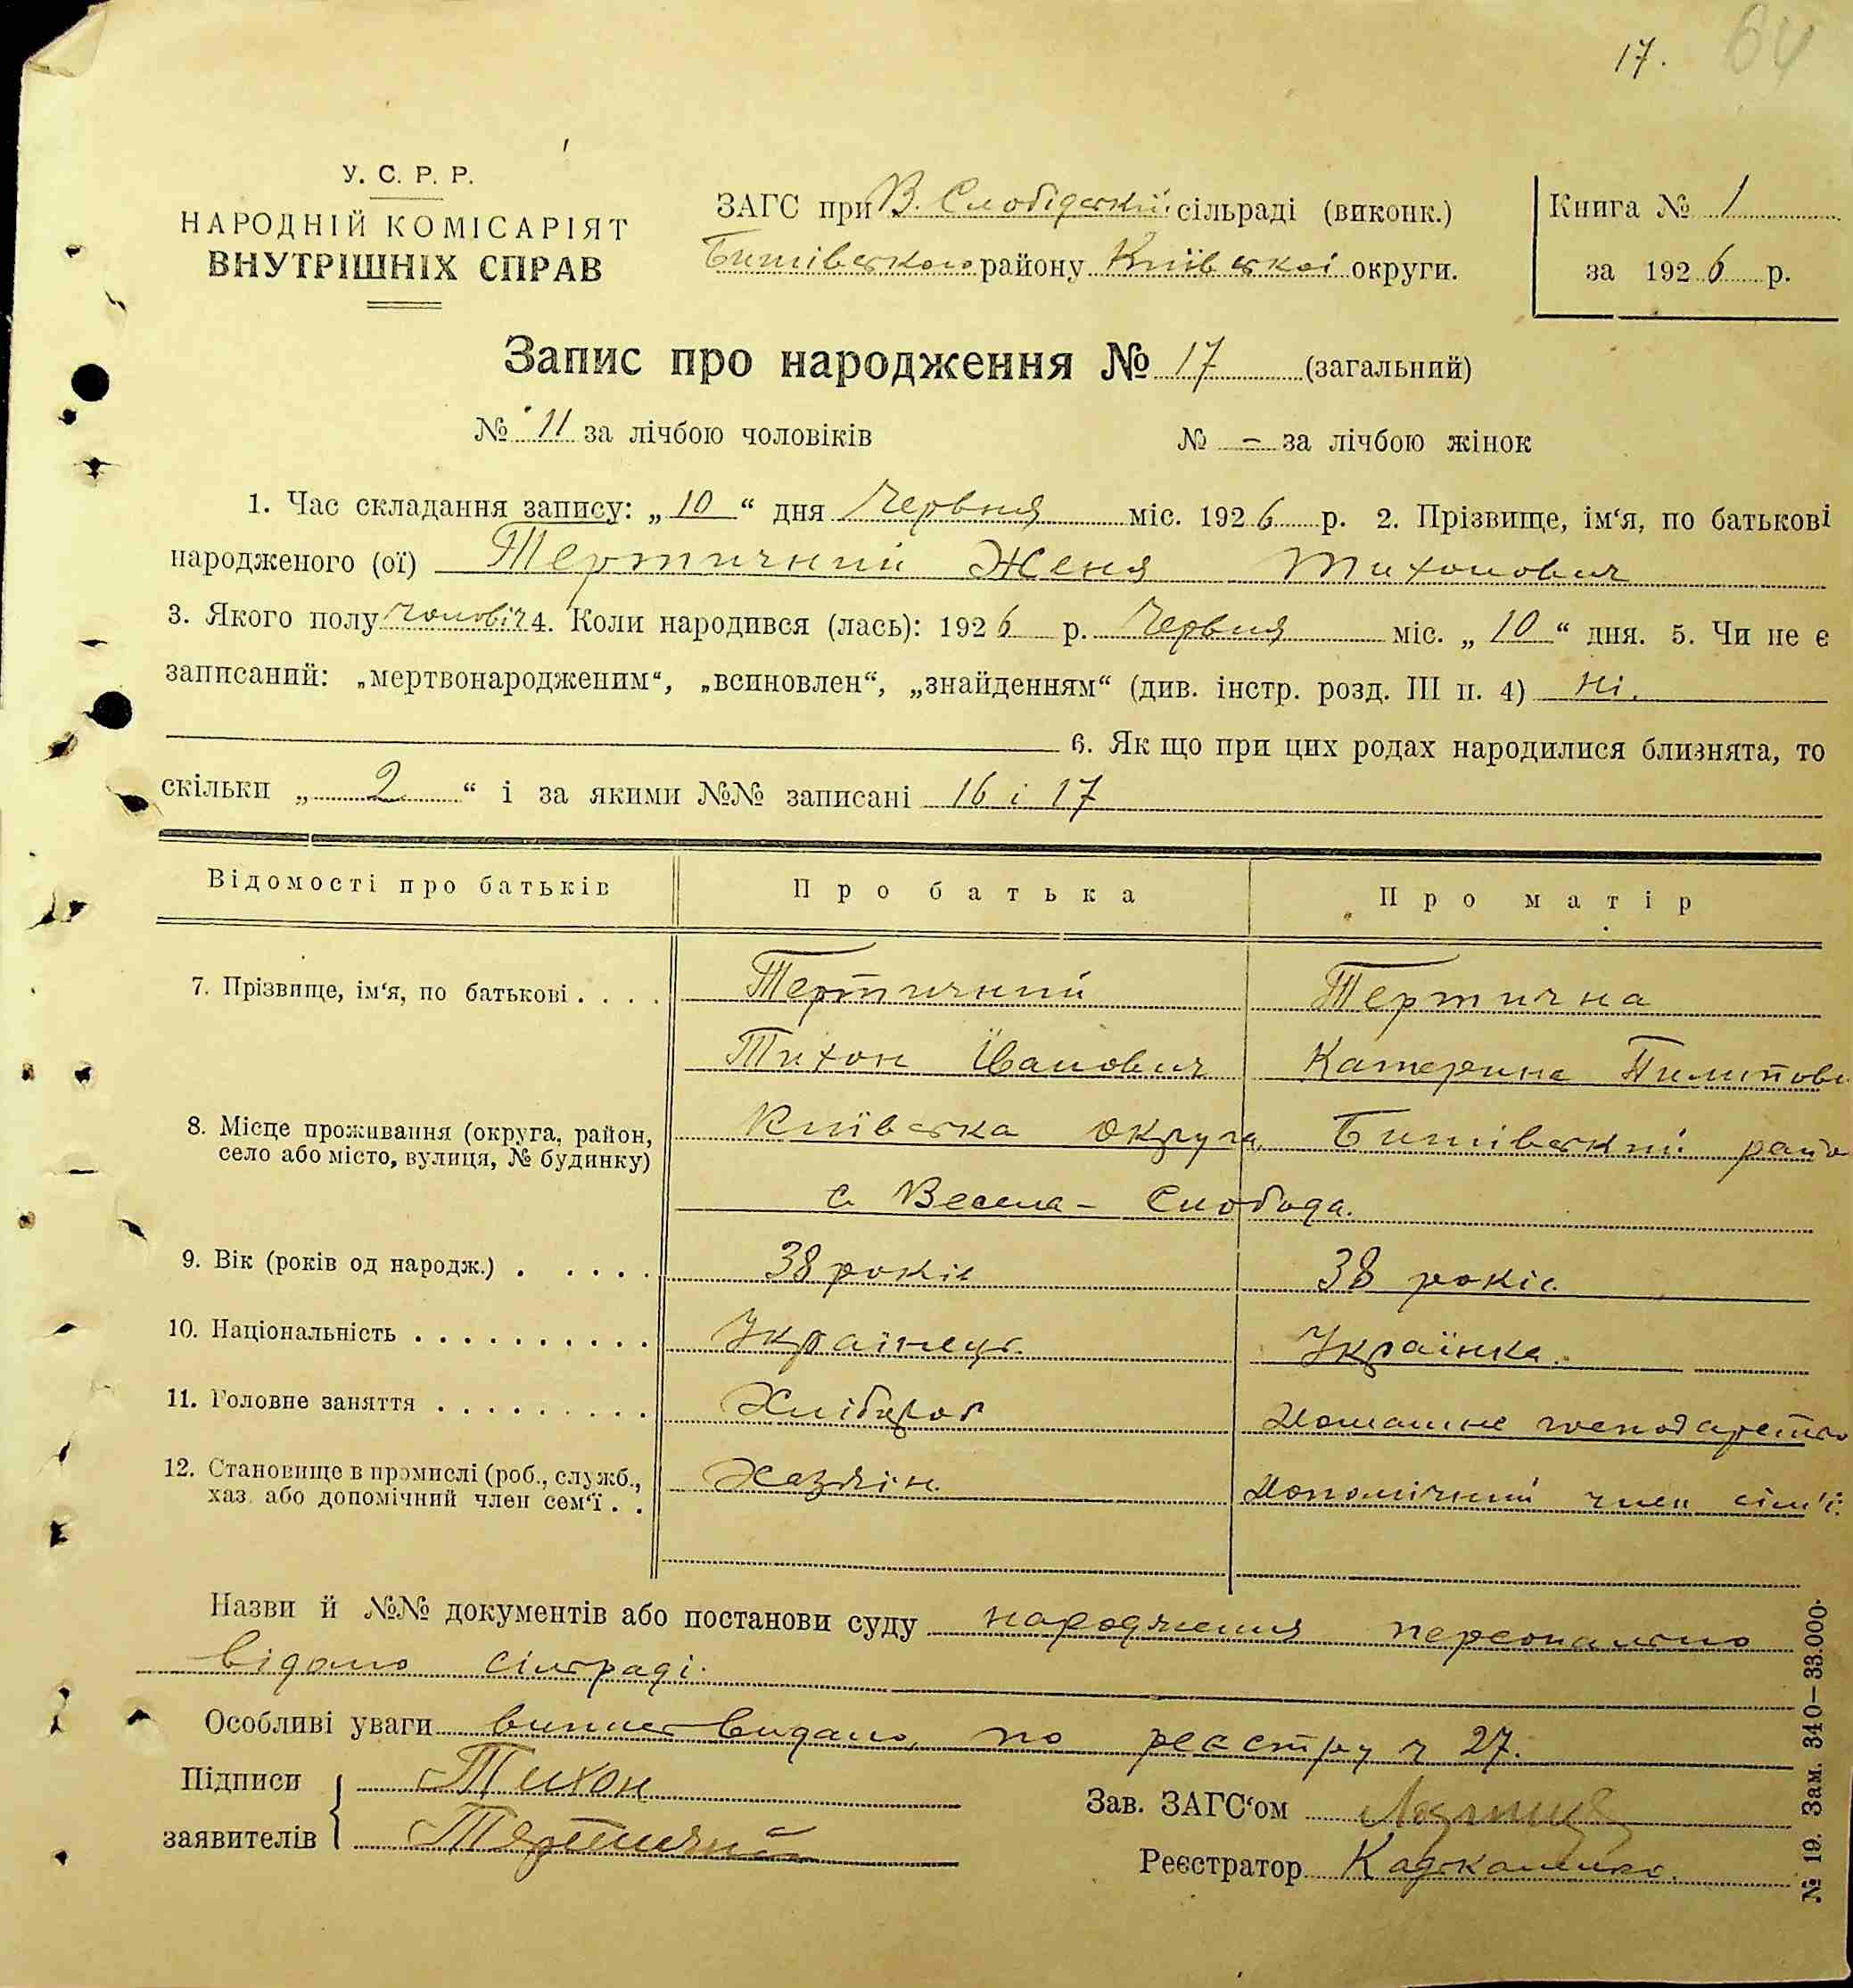 17. 64
У. С. Р. Р.
НАРОДНІЙ КОМІСАРІЯТ
ВНУТРІШНІХ СПРАВ
ЗАГС при В. Слобідській сільраді (виконк.)
Бишівського району Київської округи.
Книга № 1
за 1926 р.
Запис про народження № 17 (загальний)
№ 11 за лічбою чоловіків № – за лічбою жінок
1. Час складання запису: „10“ дня Червня міс. 1926 р. 2. Прізвище, ім‘я, по батькові
народженого (ої) Тертичний Женя Тихонович
3. Якого полу чоловіч 4. Коли народився (лась): 1926 р. Червня міс. „10“ дня. 5. Чи не є
записаний: „мертвонародженим“, „всиновлен“, „знайденням“ (див. інстр. розд. III п. 4) Ні.
6. Як що при цих родах народилися близнята, то
скільки „2“ і за якими №№ записані 16 і 17
Відомості про батьків Про батька Про матір
7. Прізвище, ім‘я, по батькові . . . . Тертичний Тертична
Тихон Іванович Катерина Пилипов
8. Місце проживання (округа, район, Київська округа, Бишівський райо
село або місто, вулиця, № будинку)
с. Весела - Слобода.
9. Вік (років од народж.) . . . . . 38 років 38 років
10. Національність . . . . . . . . . . Українець. Українка.
11. Головне заняття . . . . . . . . . Хлібороб Домашнє господарство
12. Становище в промислі (роб., служб., Хазяїн. Допомічний член сім'ї.
хаз. або допомічний член сем‘ї . .
Назви й №№ документів або постанови суду народження персонально
відомо сільраді.
Особливі уваги видано, по реєстру ч 27.
Підписи Тихон
заявителів Тертичний
Зав. ЗАГС‘ом
Реєстратор
№ 19. Зам. 340—33.000.